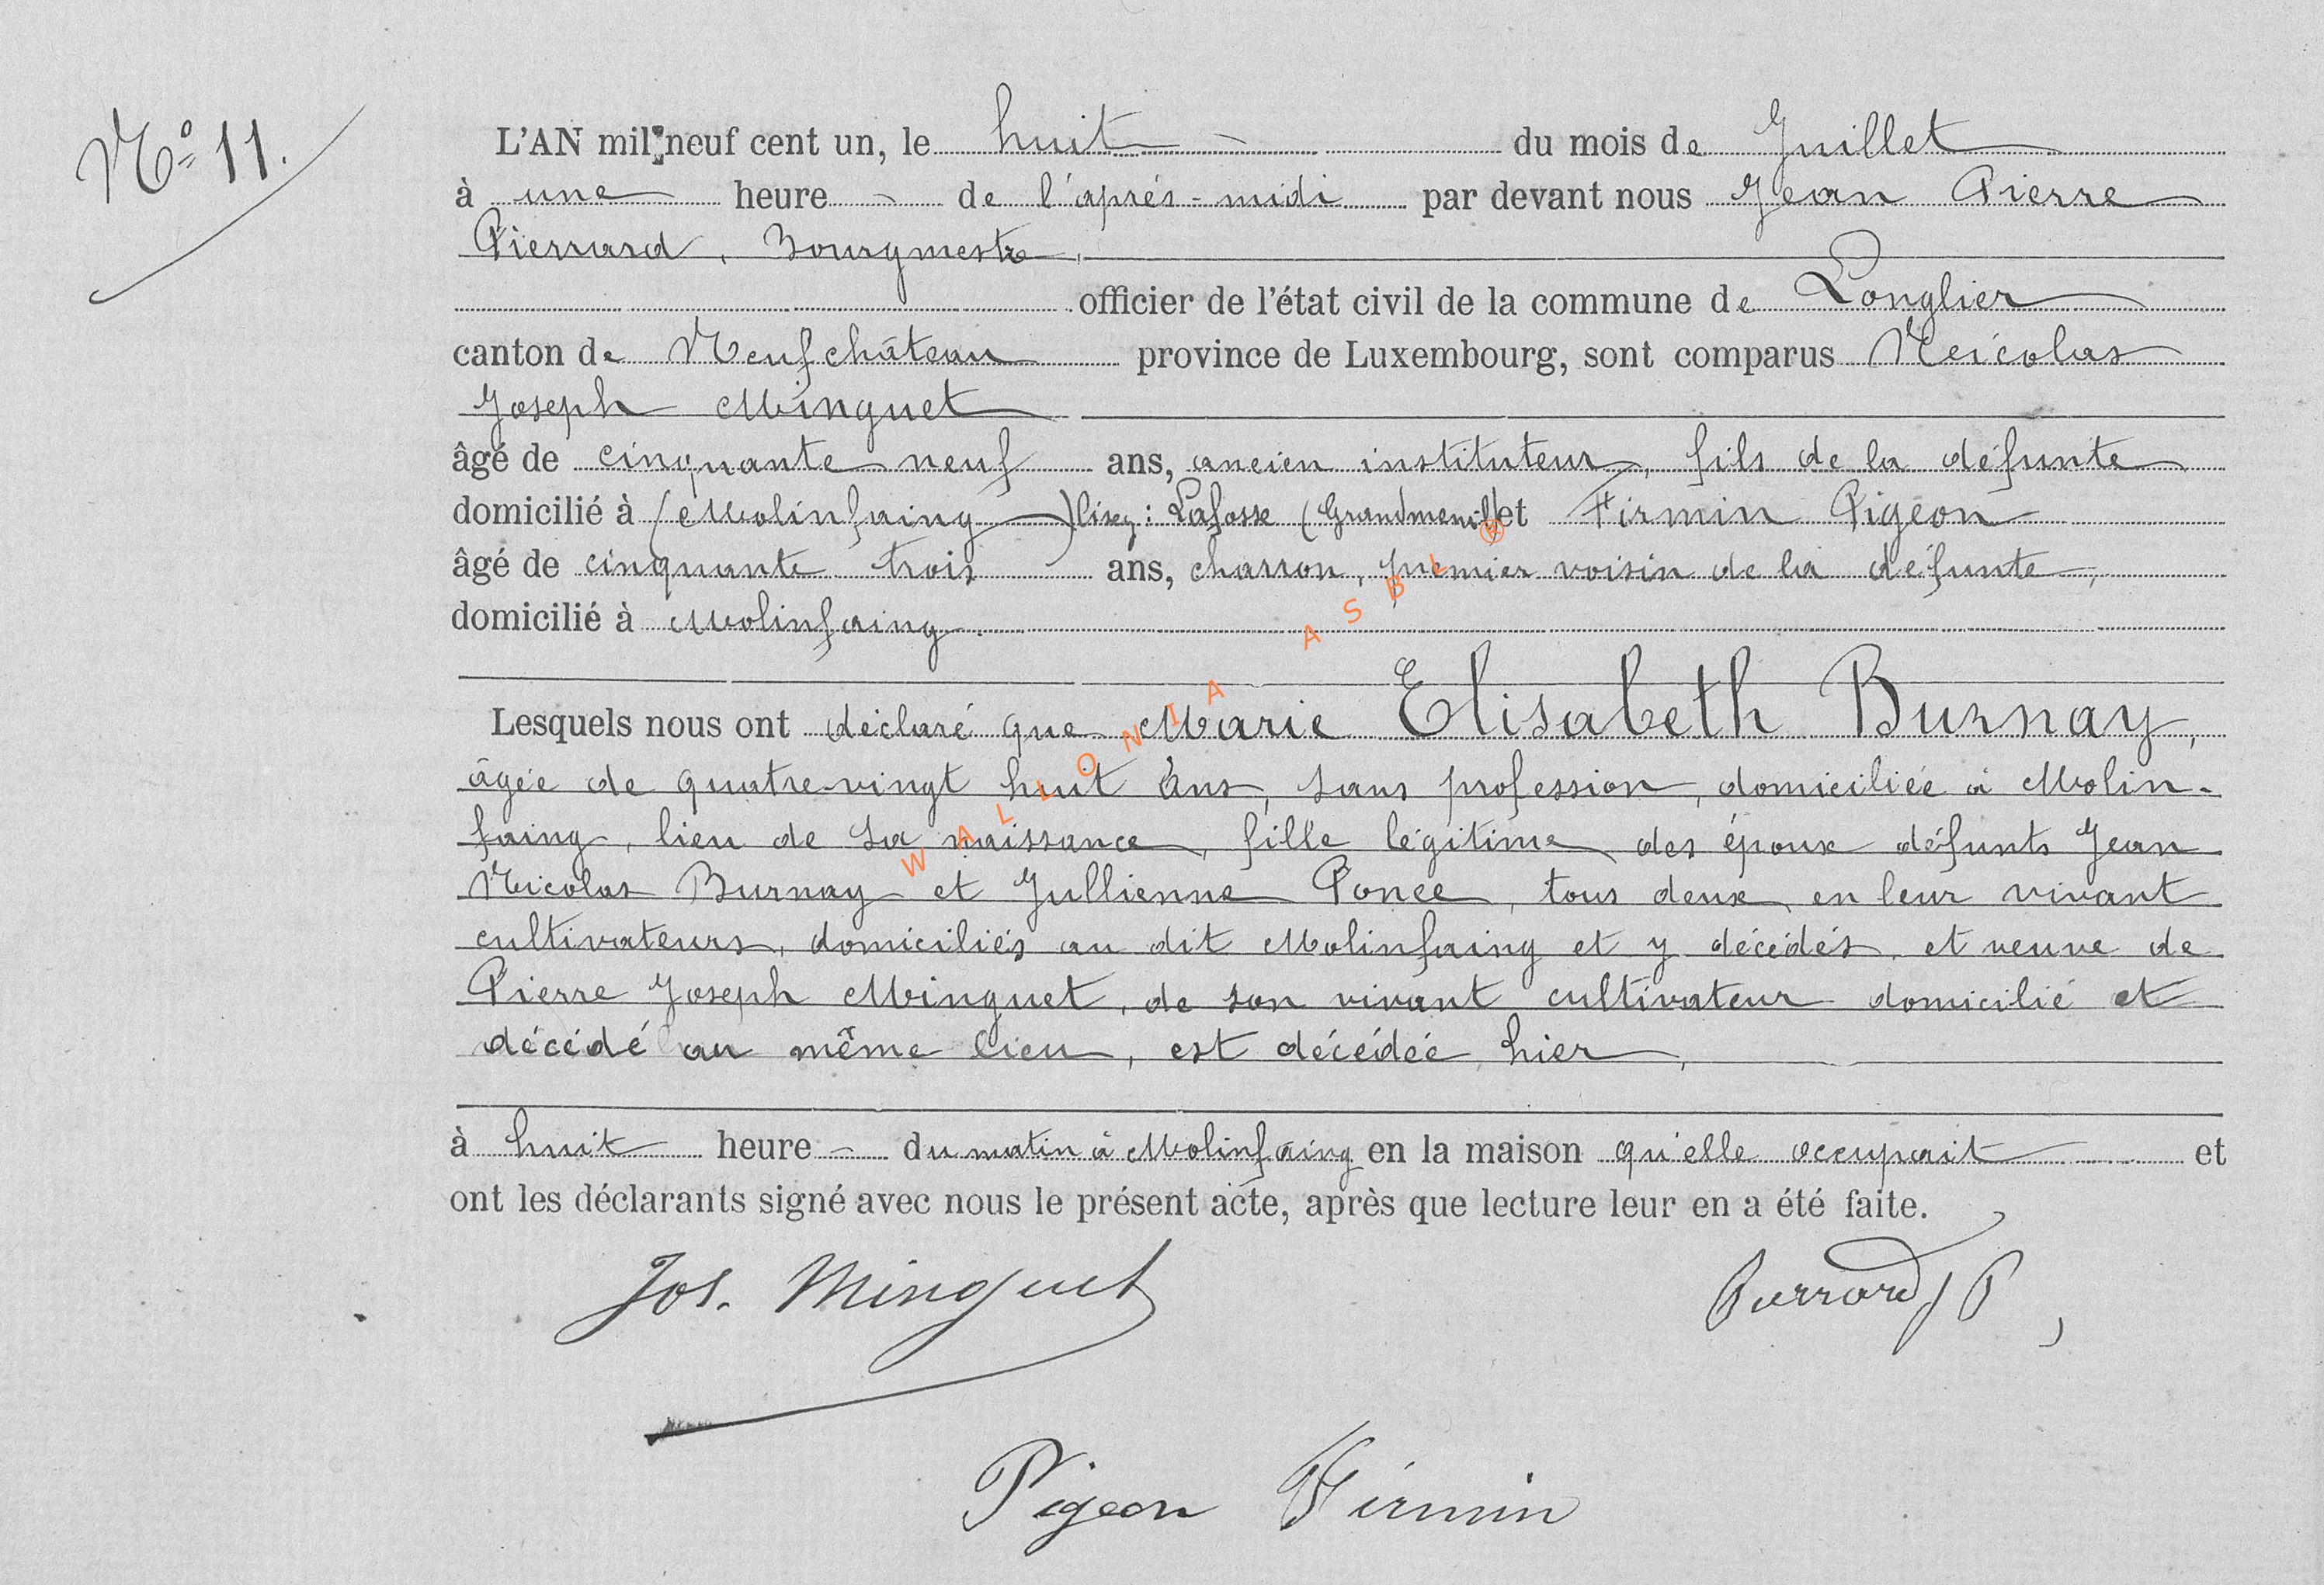 N° 11.
L'AN mil neuf cent un, le huit du mois de Juillet
à une heure de l'après-midi par devant nous Jean Pierre
Pierrard, Bourgmestre,
officier de l'état civil de la commune de Longlier
canton de Neufchâteau province de Luxembourg, sont comparus Neicolas
Joseph Minguet
âgé de cinquante neuf ans, ancien instituteur, fils de la défunte
domicilié à (Molinfaing) lisez : Lafosse (Grandmenil) et Firmin Pigeon
âgé de cinquante trois ans, charron, premier voisin de la défunte,
domicilié à Molinfaing.
Lesquels nous ont déclaré que Marie Elisabeth Burnay,
âgée de quatre-vingt huit ans, sans profession, domiciliée à Molin-
faing, lieu de sa naissance, fille légitime des époux défunts Jean
Neicolas Burnay et Jullienne Ponce, tous deux en leur vivant
cultivateurs, domiciliés au dit Molinfaing et y décédés, et veuve de
Pierre Joseph Minguet, de son vivant cultivateur domicilié et
décédé au même lieu, est décédée hier,
à huit heure du matin à Molinfaing en la maison qu'elle occupait et
ont les déclarants signé avec nous le présent acte, après que lecture leur en a été faite.
Jos. Minguet
Pierrard J P
Pigeon Firmin
WALLONIA ASBL ®